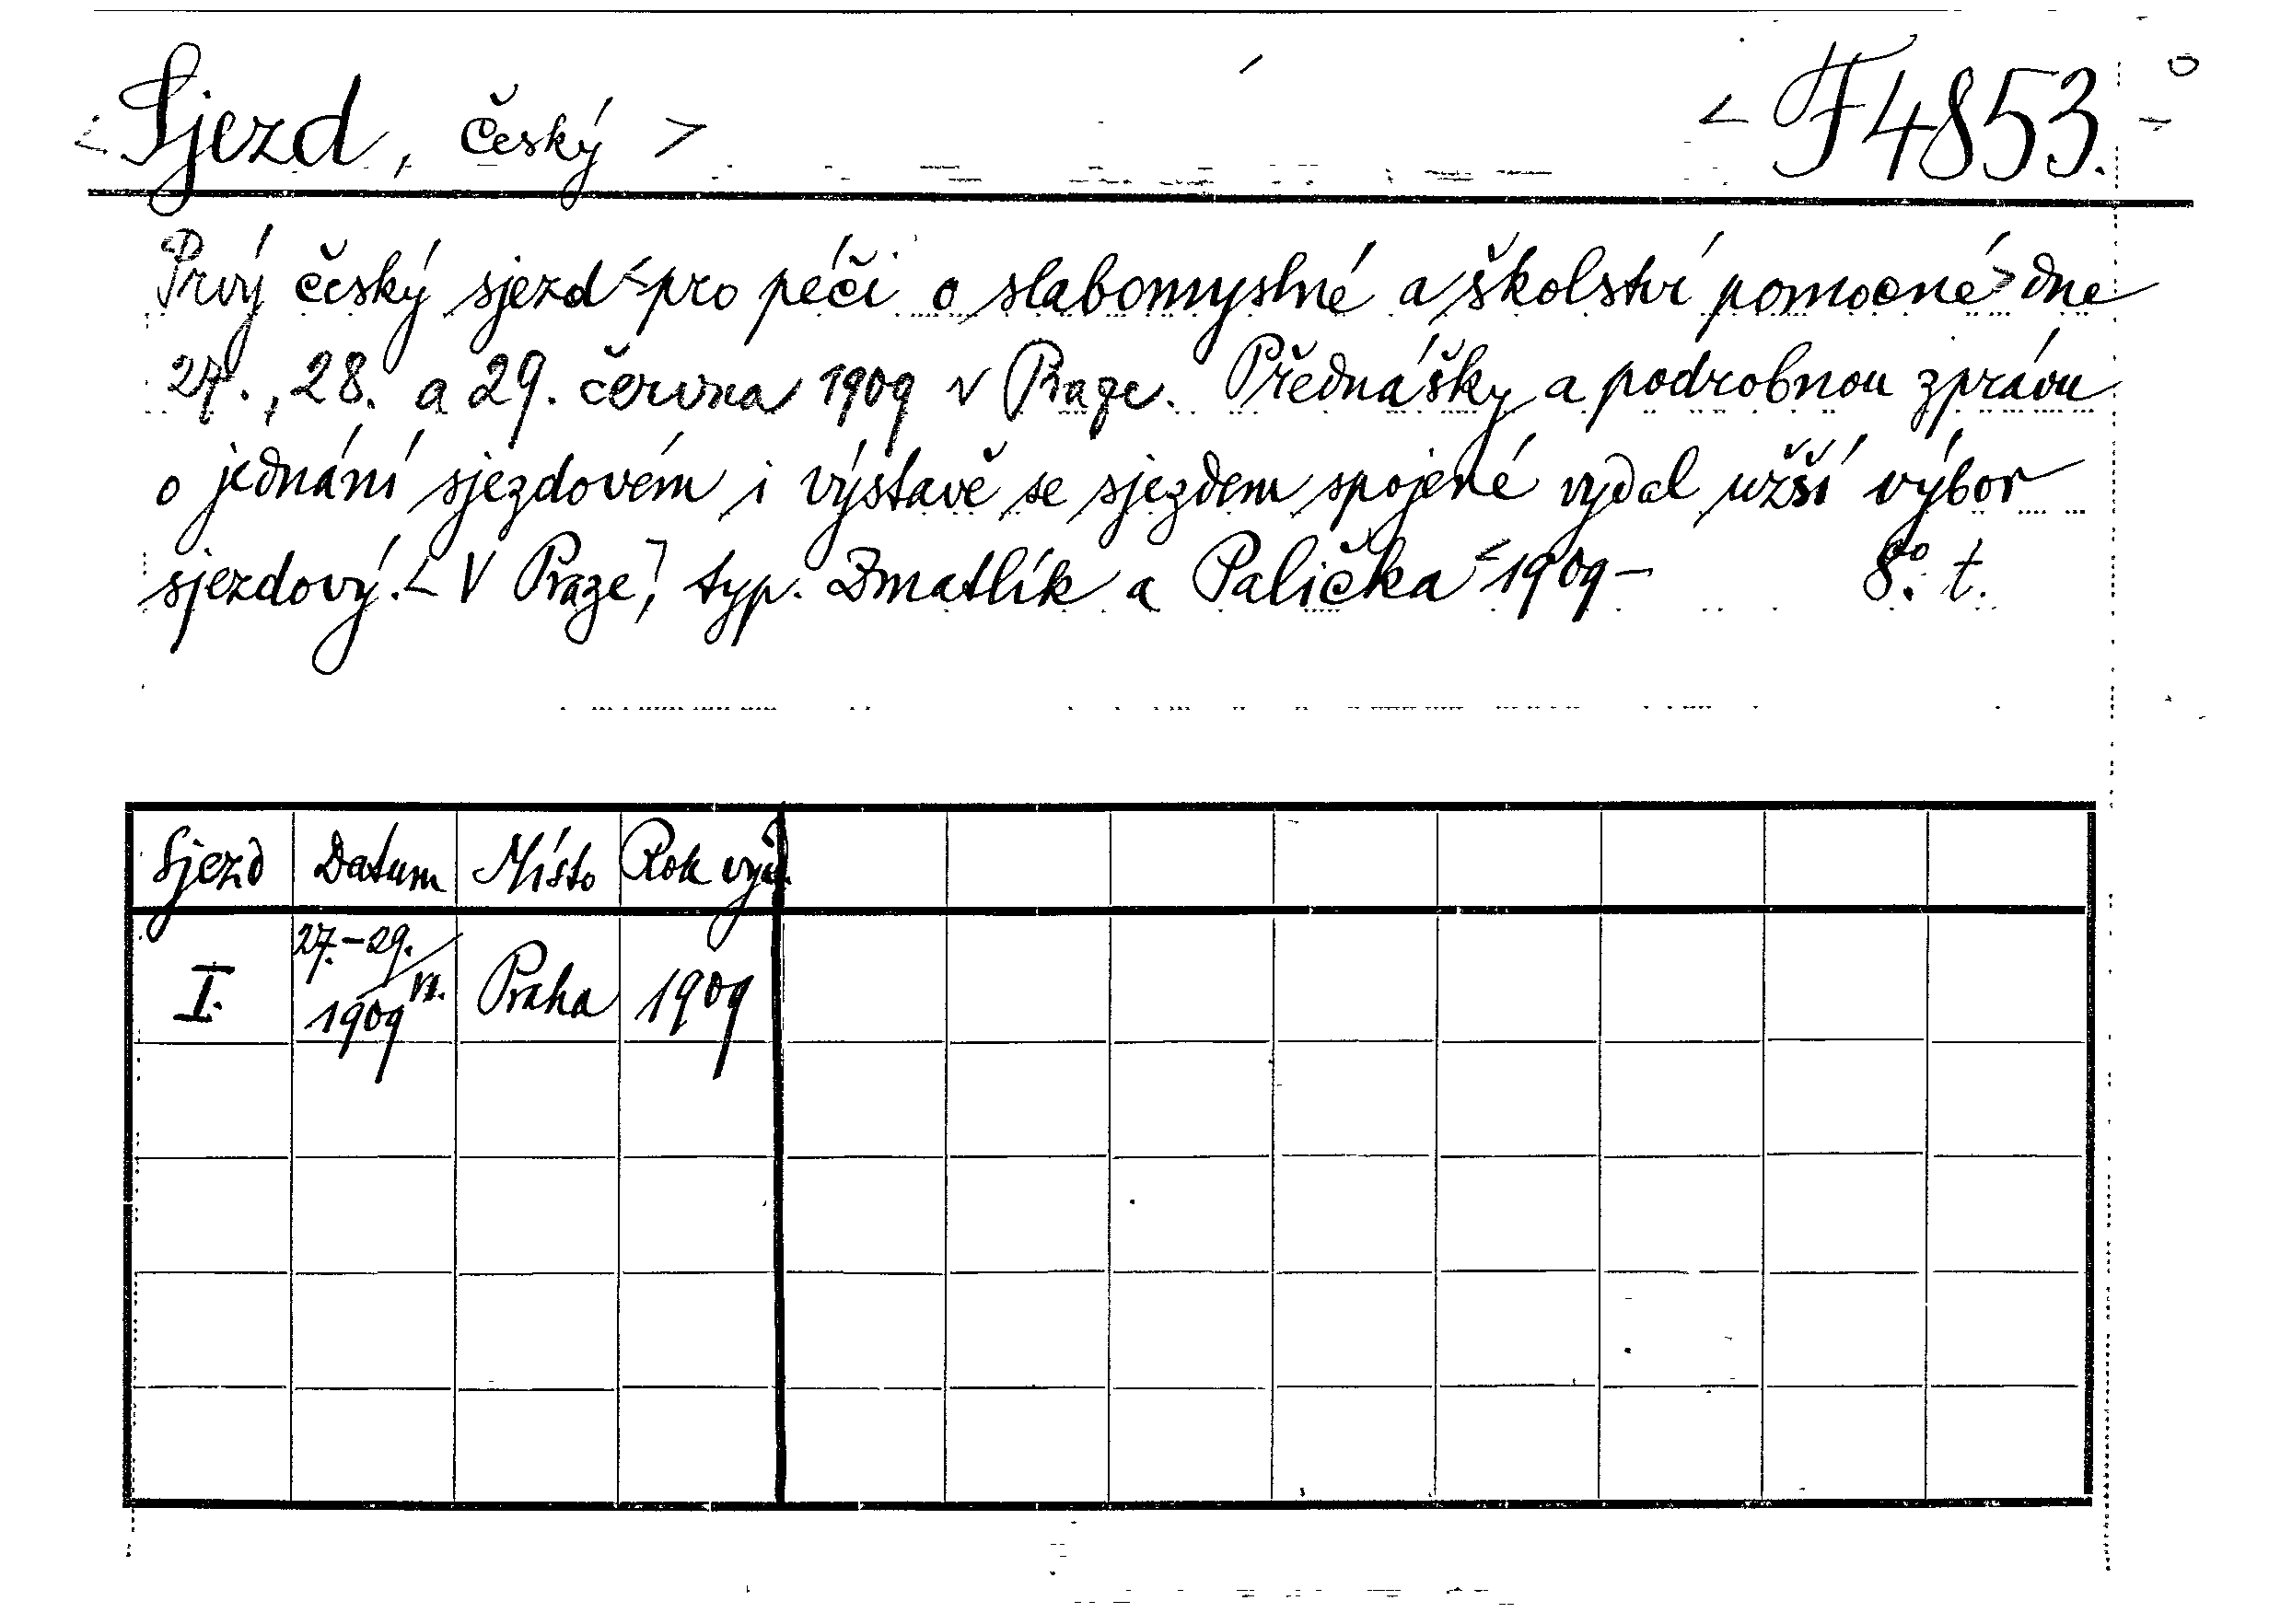 <Sjezd, český > < F 4853.
Prvý český sjezd < pro péči o slabomyslné a školství pomocné > dne
27., 28. a 29. června 1909 v Praze. Přednášky a podrobnou zprávu
o jednání sjezdovém i výstavě se sjezdem spojené vydal užší výbor
sjezdový. [V Praze], typ. Zmatlík a Palička < 1909 – 8°. t.
Sjezd Datum Místo Rok vyd.
I. 27.–29./VI. 1909 Praha 1909